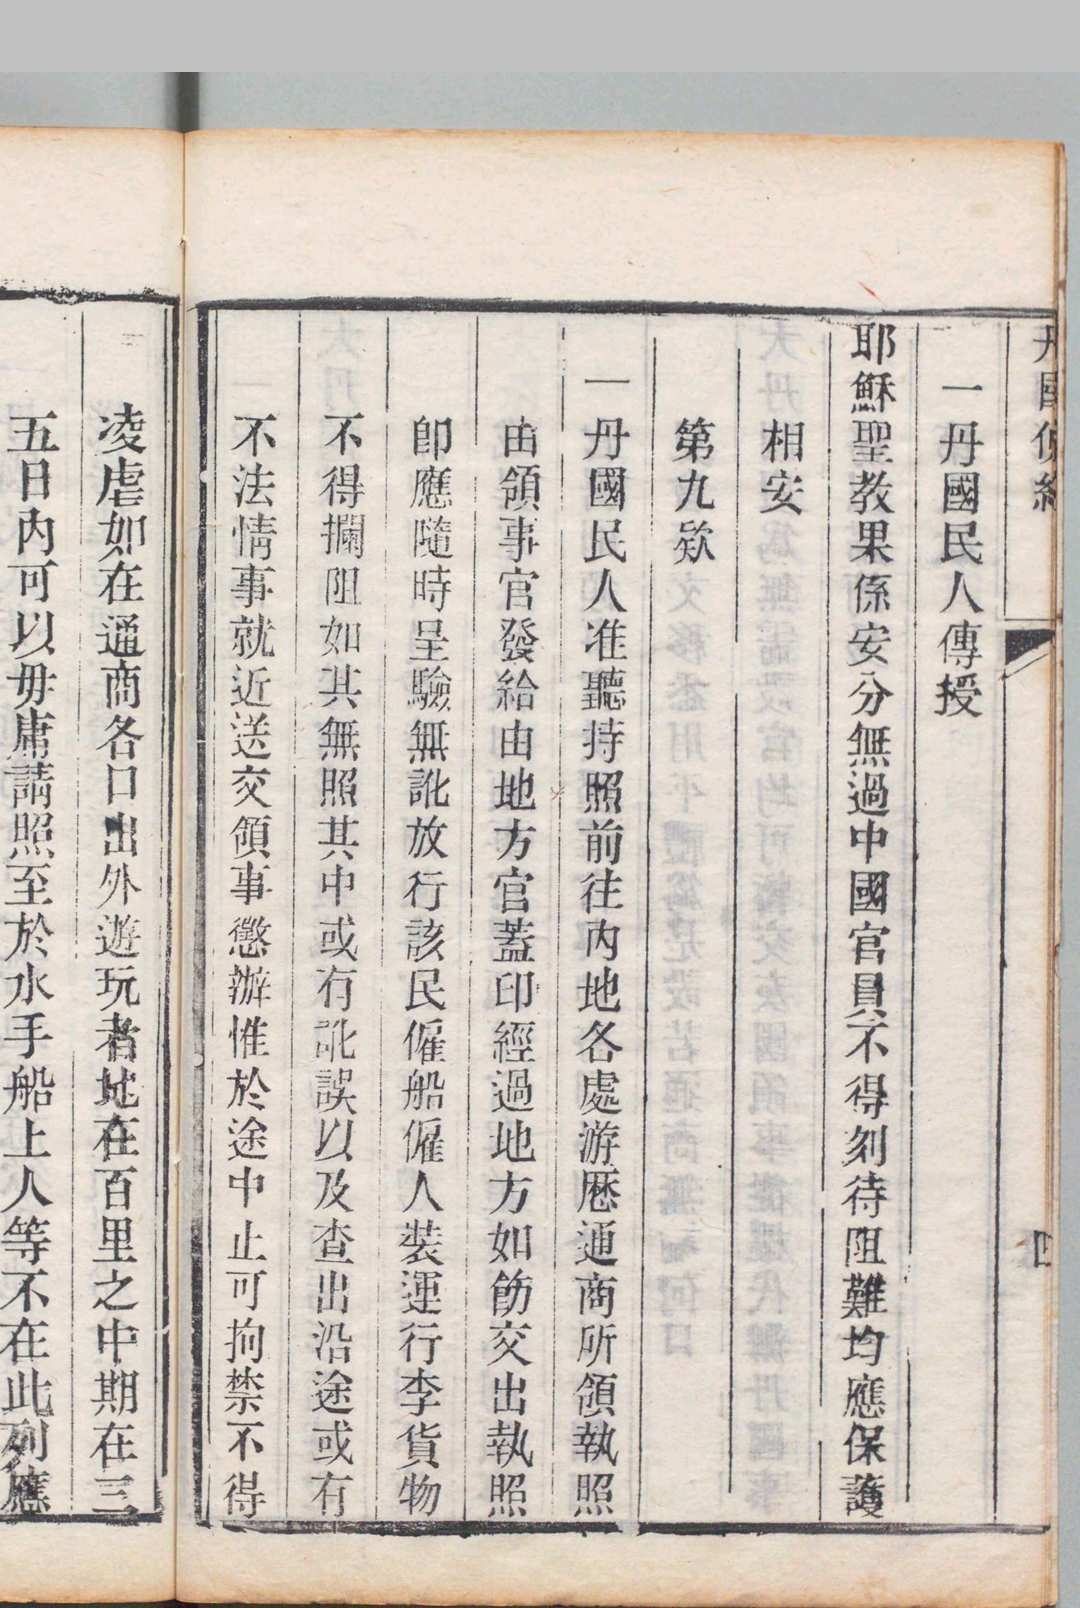 一丹國民人傳授
耶穌聖教果係安分無過中國官員不得刻待阻難均應保護
相安
第九欵
一丹國民人准聽持照前往內地各處游歷通商所領執照
由領事官發給由地方官蓋印經過地方如飭交出執照
卽應隨時呈驗無訛放行該民僱船僱人裝運行李貨物
不得攔阻如其無照其中或有訛誤以及查出沿途或有
不法情事就近送交領事懲辦惟於途中止可拘禁不得
凌虐如在通商各口出外遊玩者地在百里之中期在三
五日內可以毋庸請照至於水手船上人等不在此列應